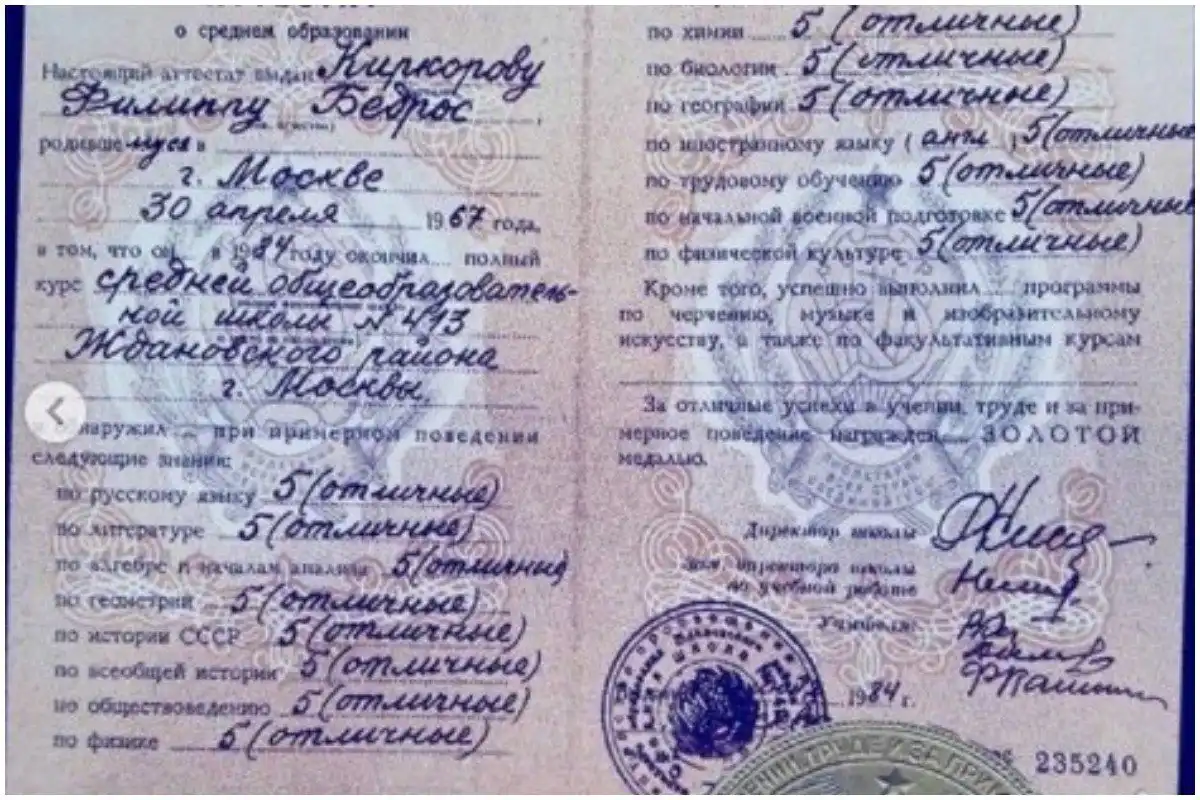 о среднем образовании
Настоящий аттестат выдан Киркорову
Филиппу Бедрос
родивше муся в
г. Москве
30 апреля 1967 года,
в том, что он в 1984 году окончил полный
курс средней общеобразователь-
ной школы № 413
Ждановского района
г. Москвы,
наружил при примерном поведении
следующие знания:
по русскому языку 5 (отличные)
по литературе 5 (отличные)
по алгебре и началам анализа 5 (отличные)
по геометрии 5 (отличные)
по истории СССР 5 (отличные)
по всеобщей истории 5 (отличные)
по обществоведению 5 (отличные)
по физике 5 (отличные)
по химии 5 (отличные)
по биологии 5 (отличные)
по географии 5 (отличные)
по иностранному языку (англ) 5 (отличные
по трудовому обучению 5 (отличные)
по начальной военной подготовке 5 (отличные
по физической культуре 5 (отличные)
Кроме того, успешно выполнил программы
по черчению, музыке и изобразительному
искусству, а также по факультативным курсам
За отличные успехи в учении, труде и за при-
мерное поведение награжден ЗОЛОТОЙ
медалью.
Директор школы
Зам. директора школы
по учебной работе
Учителя:
1984 г.
235240
ЕНИИ, ТРУДЕ И ЗА ПРИ